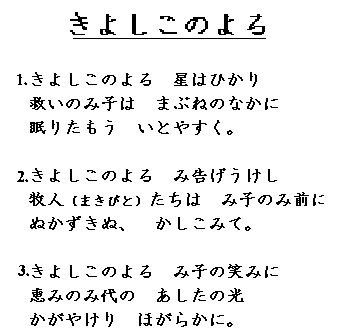 きよしこのよる
1.きよしこのよる　星はひかり
救いのみ子は　まぶねのなかに
眠りたもう　いとやすく。
2.きよしこのよる　み告げうけし
牧人（まきびと）たちは　み子のみ前に
ぬかずきぬ、　かしこみて。
3.きよしこのよる　み子の笑みに
恵みのみ代の　あしたの光
かがやけり　ほがらかに。